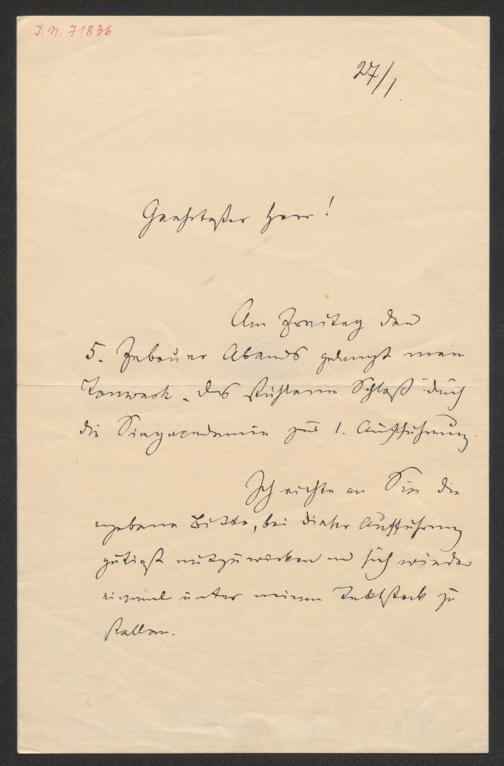 J. N. 71836
27/1
Geehrtester Herr!
Am Freitag den
5. Februar Abends gelangt mein
Tonwerk „Das stählerne Schloß“ durch
die Singacademie zur 1. Aufführung.
Ich richte an Sie die
ergebene Bitte, bei dieser Aufführung
gütigst mitzuwirken und sich wieder
einmal unter meinen Taktstock zu
stellen.